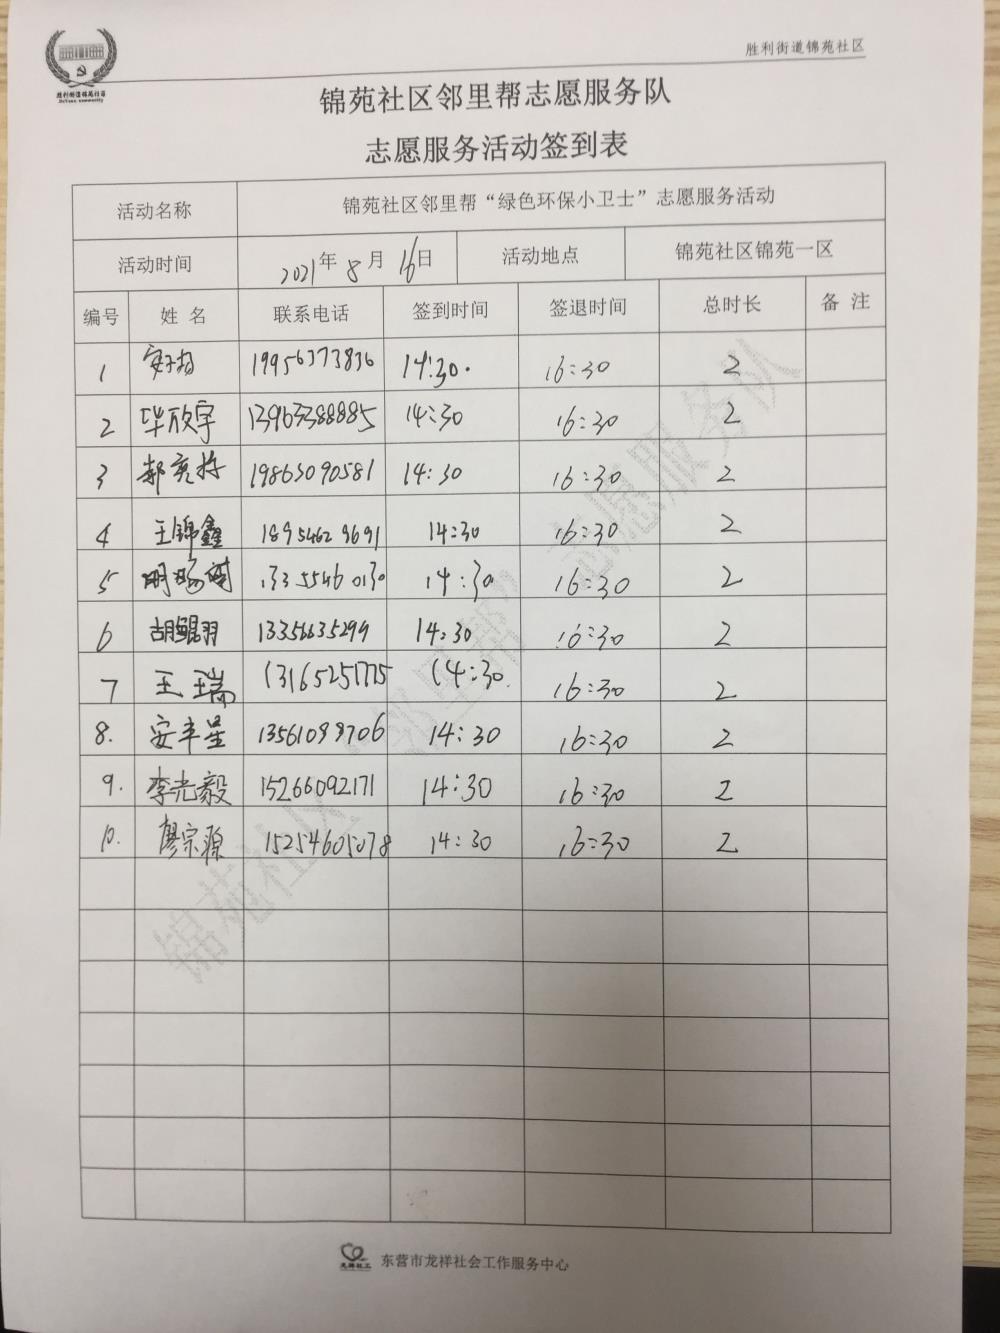 胜利街道锦苑社区
胜利街道锦苑社区
锦苑社区邻里帮志愿服务队
志愿服务活动签到表
活动名称 锦苑社区邻里帮“绿色环保小卫士”志愿服务活动
活动时间 2021年8月16日 活动地点 锦苑社区锦苑一区
编号 姓名 联系电话 签到时间 签退时间 总时长 备注
1 19956373836 14:30. 16:30 2
2 毕欣宇 13963388885 14:30 16:30 2
3 郝奕 19863090581 14:30 16:30 2
4 王锦鑫 18954629691 14:30 16:30 2
5 明 13355460130 14:30 16:30 2
6 胡鲲羽 13356635299 14:30 16:30 2
7 王瑞 13165251775 14:30. 16:30 2
8. 安丰星 13561098706 14:30 16:30 2
9. 李光毅 15266092171 14:30 16:30 2
10. 廖宗源 15254605078 14:30 16:30 2
锦苑社区“邻里帮”志愿服务队
龙祥社工 东营市龙祥社会工作服务中心